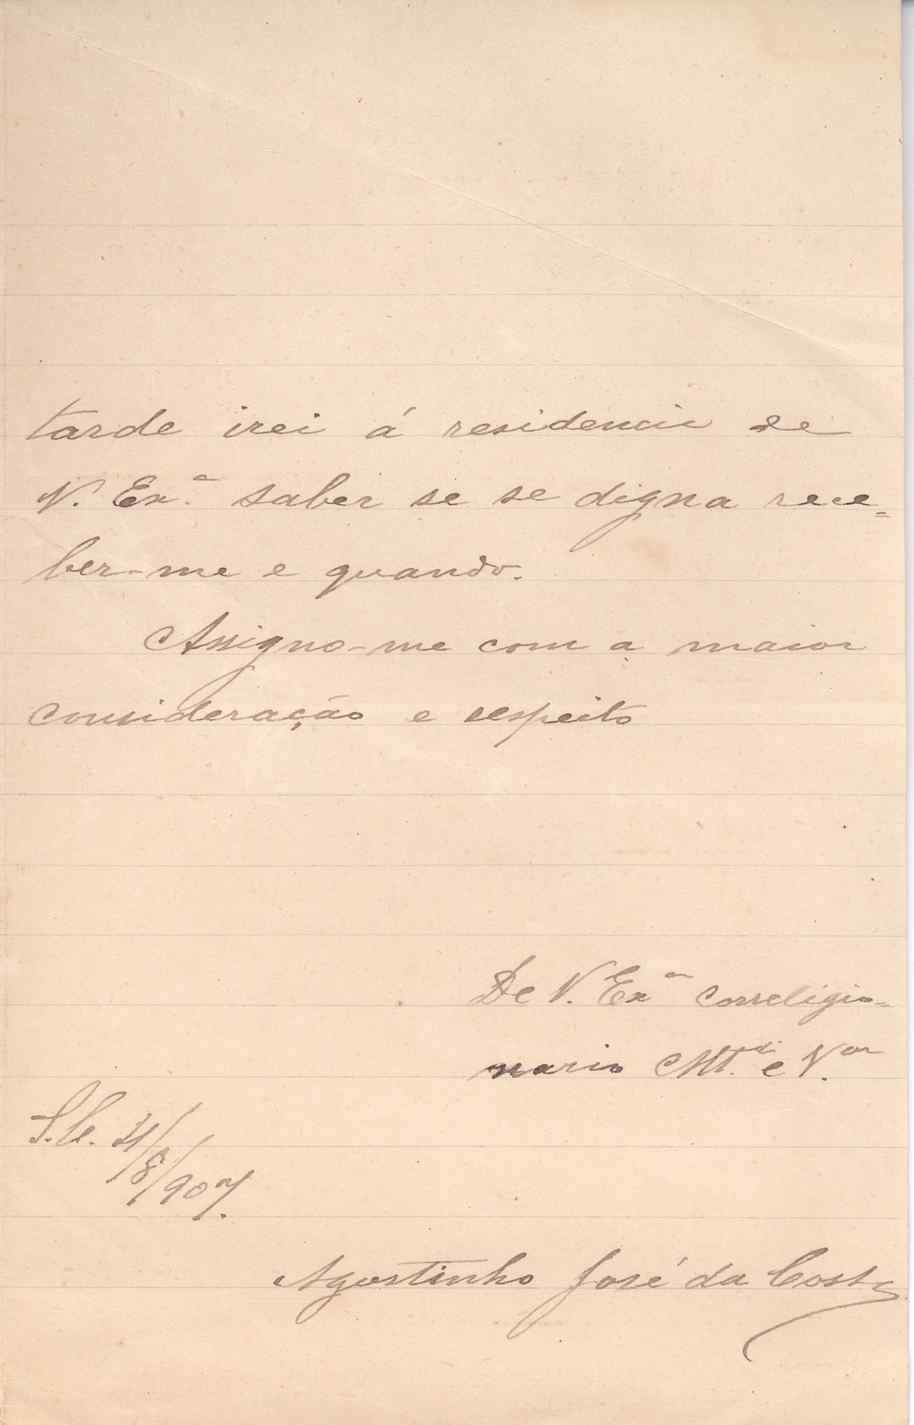 tarde irei á residencia de
V. Ex.ª saber se se digna rece=
ber-me e quando.
Assigno-me com a maior
consideração e respeito
De V. Exª correligio=
nario Mt. e V.or
S.C. 21/8/907.
Agostinho José da Costa